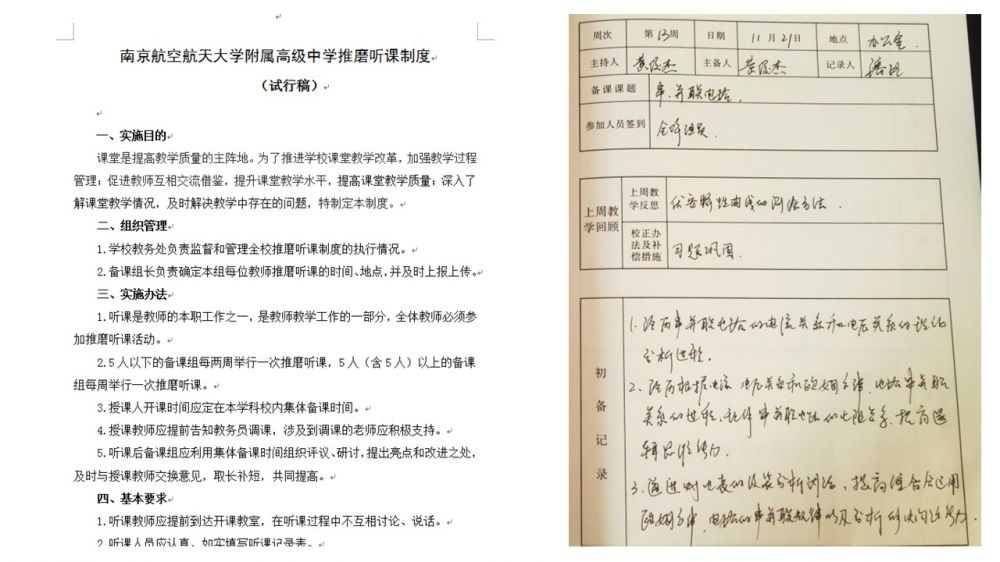 南京航空航天大学附属高级中学推磨听课制度
（试行稿）
一、实施目的
课堂是提高教学质量的主阵地。为了推进学校课堂教学改革，加强教学过程
管理；促进教师互相交流借鉴，提升课堂教学水平，提高课堂教学质量；深入了
解课堂教学情况，及时解决教学中存在的问题，特制定本制度。
二、组织管理
1.学校教务处负责监督和管理全校推磨听课制度的执行情况。
2.备课组长负责确定本组每位教师推磨听课的时间、地点，并及时上报上传。
三、实施办法
1.听课是教师的本职工作之一，是教师教学工作的一部分，全体教师必须参
加推磨听课活动。
2.5人以下的备课组每两周举行一次推磨听课，5人（含5人）以上的备课
组每周举行一次推磨听课。
3.授课人开课时间应定在本学科校内集体备课时间。
4.授课教师应提前告知教务员调课，涉及到调课的老师应积极支持。
5.听课后备课组应利用集体备课时间组织评议、研讨，提出亮点和改进之处，
及时与授课教师交换意见，取长补短，共同提高。
四、基本要求
1.听课教师应提前到达开课教室，在听课过程中不互相讨论、说话。
2.听课人员应认真、如实填写听课记录表。
周次 第13周 日期 11月21日 地点 办公室
主持人 黄俊杰 主备人 黄俊杰 记录人
备课课题 串、并联电路.
参加人员签到 全体组员
上周教学回顾
上周教学反思 伏安特性曲线的测绘方法.
校正办法及补偿措施 习题巩固.
初备记录
1、经历串并联电路的电流关系和电压关系的理论
分析过程.
2、经历根据电流、电压关系和欧姆定律、电路串并联
关系的过程, 串并联电路的电阻关系, 提高逻
辑思维能力.
3、通过对电表的改装分析训练, 提高综合运用
欧姆定律、电路的串并联规律以及分析解决问题能力.